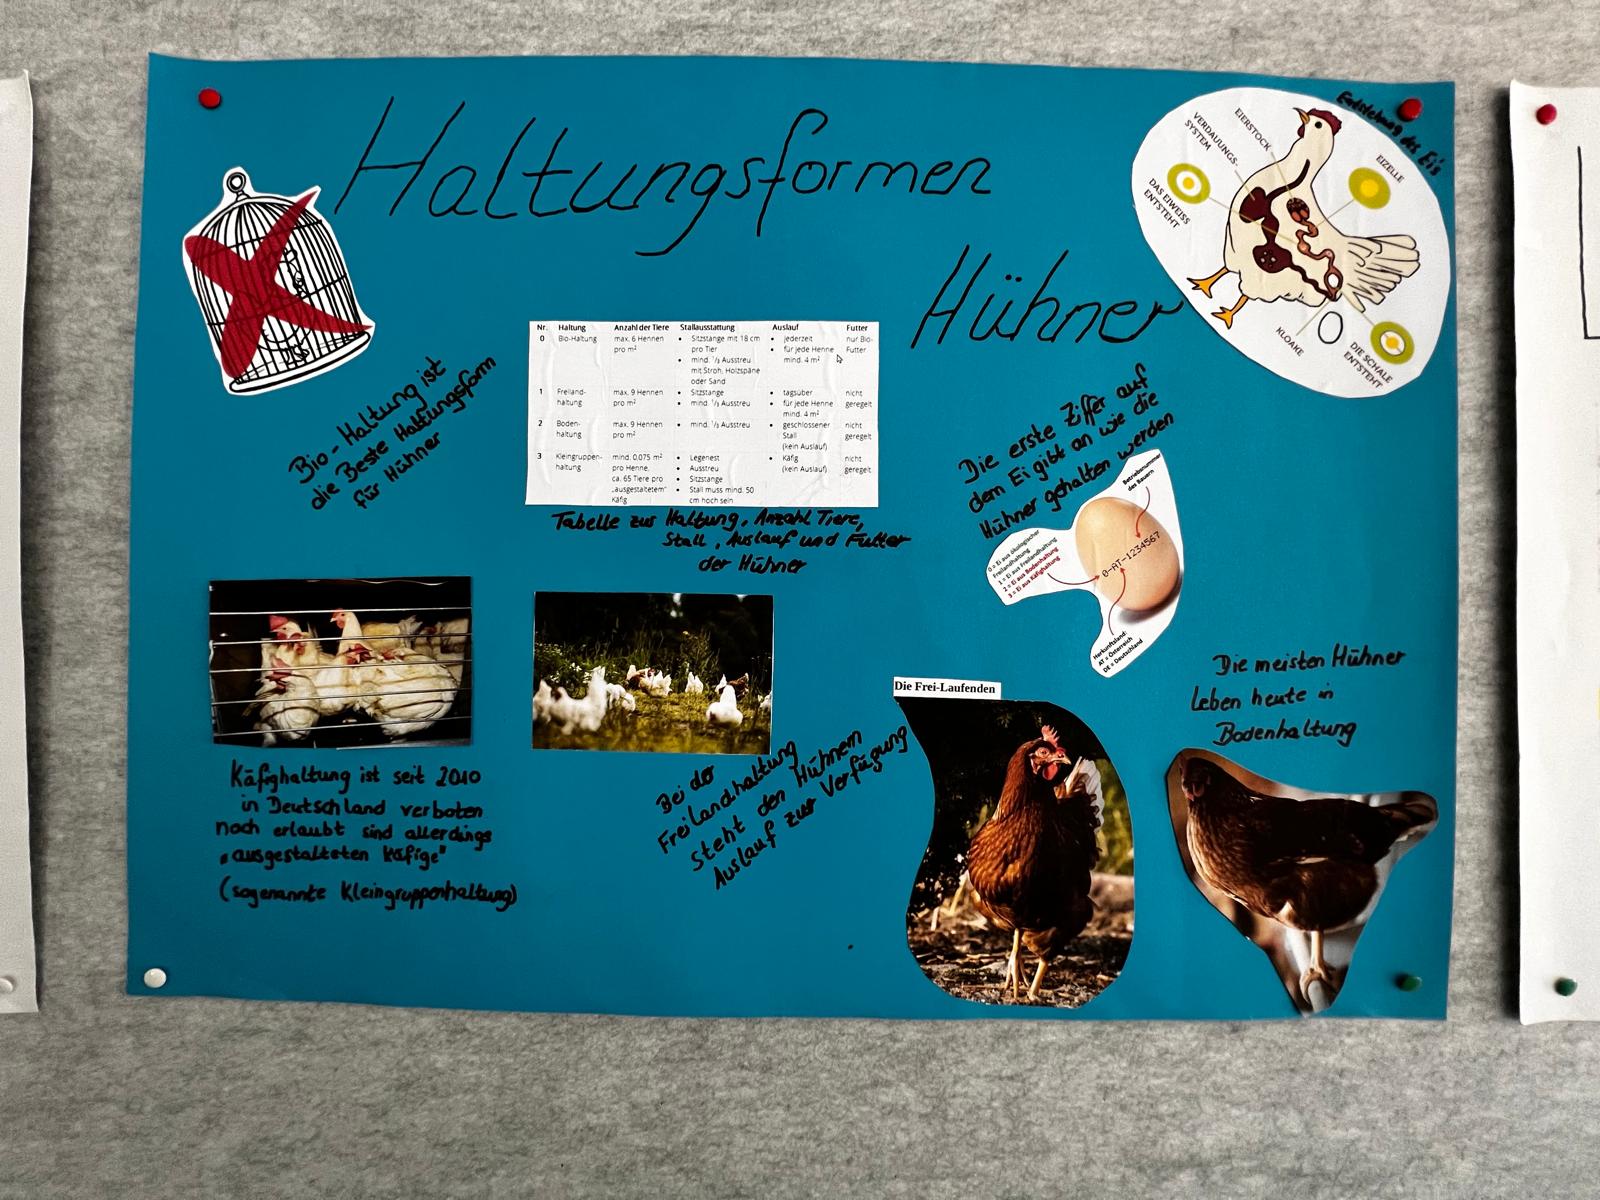 Haltungsformen
Hühner
Entstehung des Ei's
EIERSTOCK
VERDAUUNGS-
SYSTEM
EIZELLE
DAS EIWEISS
ENTSTEHT
KLOAKE
DIE SCHALE
ENTSTEHT
Bio-Haltung ist
die Beste Haltungsform
für Hühner
Nr. Haltung Anzahl der Tiere Stallausstattung Auslauf Futter
0 Bio-Haltung max. 6 Hennen • Sitzstange mit 18 cm • jederzeit nur Bio-
pro m² pro Tier • für jede Henne Futter
• mind. 1/3 Ausstreu mind. 4 m²
mit Stroh, Holzspäne
oder Sand
1 Freiland- max. 9 Hennen • Sitzstange • tagsüber nicht
haltung pro m² • mind. 1/3 Ausstreu • für jede Henne geregelt
mind. 4 m²
2 Boden- max. 9 Hennen • mind. 1/3 Ausstreu • geschlossener nicht
haltung pro m² Stall geregelt
(kein Auslauf)
3 Kleingruppen- mind. 0,075 m² • Legenest • Käfig nicht
haltung pro Henne, • Ausstreu (kein Auslauf) geregelt
ca. 65 Tiere pro • Sitzstange
„ausgestaltetem“ • Stall muss mind. 50
Käfig cm hoch sein
Tabelle zur Haltung, Anzahl Tiere,
Stall, Auslauf und Futter
der Hühner
Die erste Ziffer auf
dem Ei gibt an wie die
Hühner gehalten werden
Betriebsnummer
des Bauern
0 = Ei aus ökologischer
Freilandhaltung
1 = Ei aus Freilandhaltung
2 = Ei aus Bodenhaltung
3 = Ei aus Käfighaltung
0-AT-1234567
Herkunftsland:
AT = Österreich
DE = Deutschland
Käfighaltung ist seit 2010
in Deutschland verboten
noch erlaubt sind allerdings
„ausgestalteten Käfige"
(sogenannte Kleingruppenhaltung)
Bei der
Freilandhaltung
steht den Hühnern
Auslauf zur Verfügung
Die Frei-Laufenden
Die meisten Hühner
leben heute in
Bodenhaltung